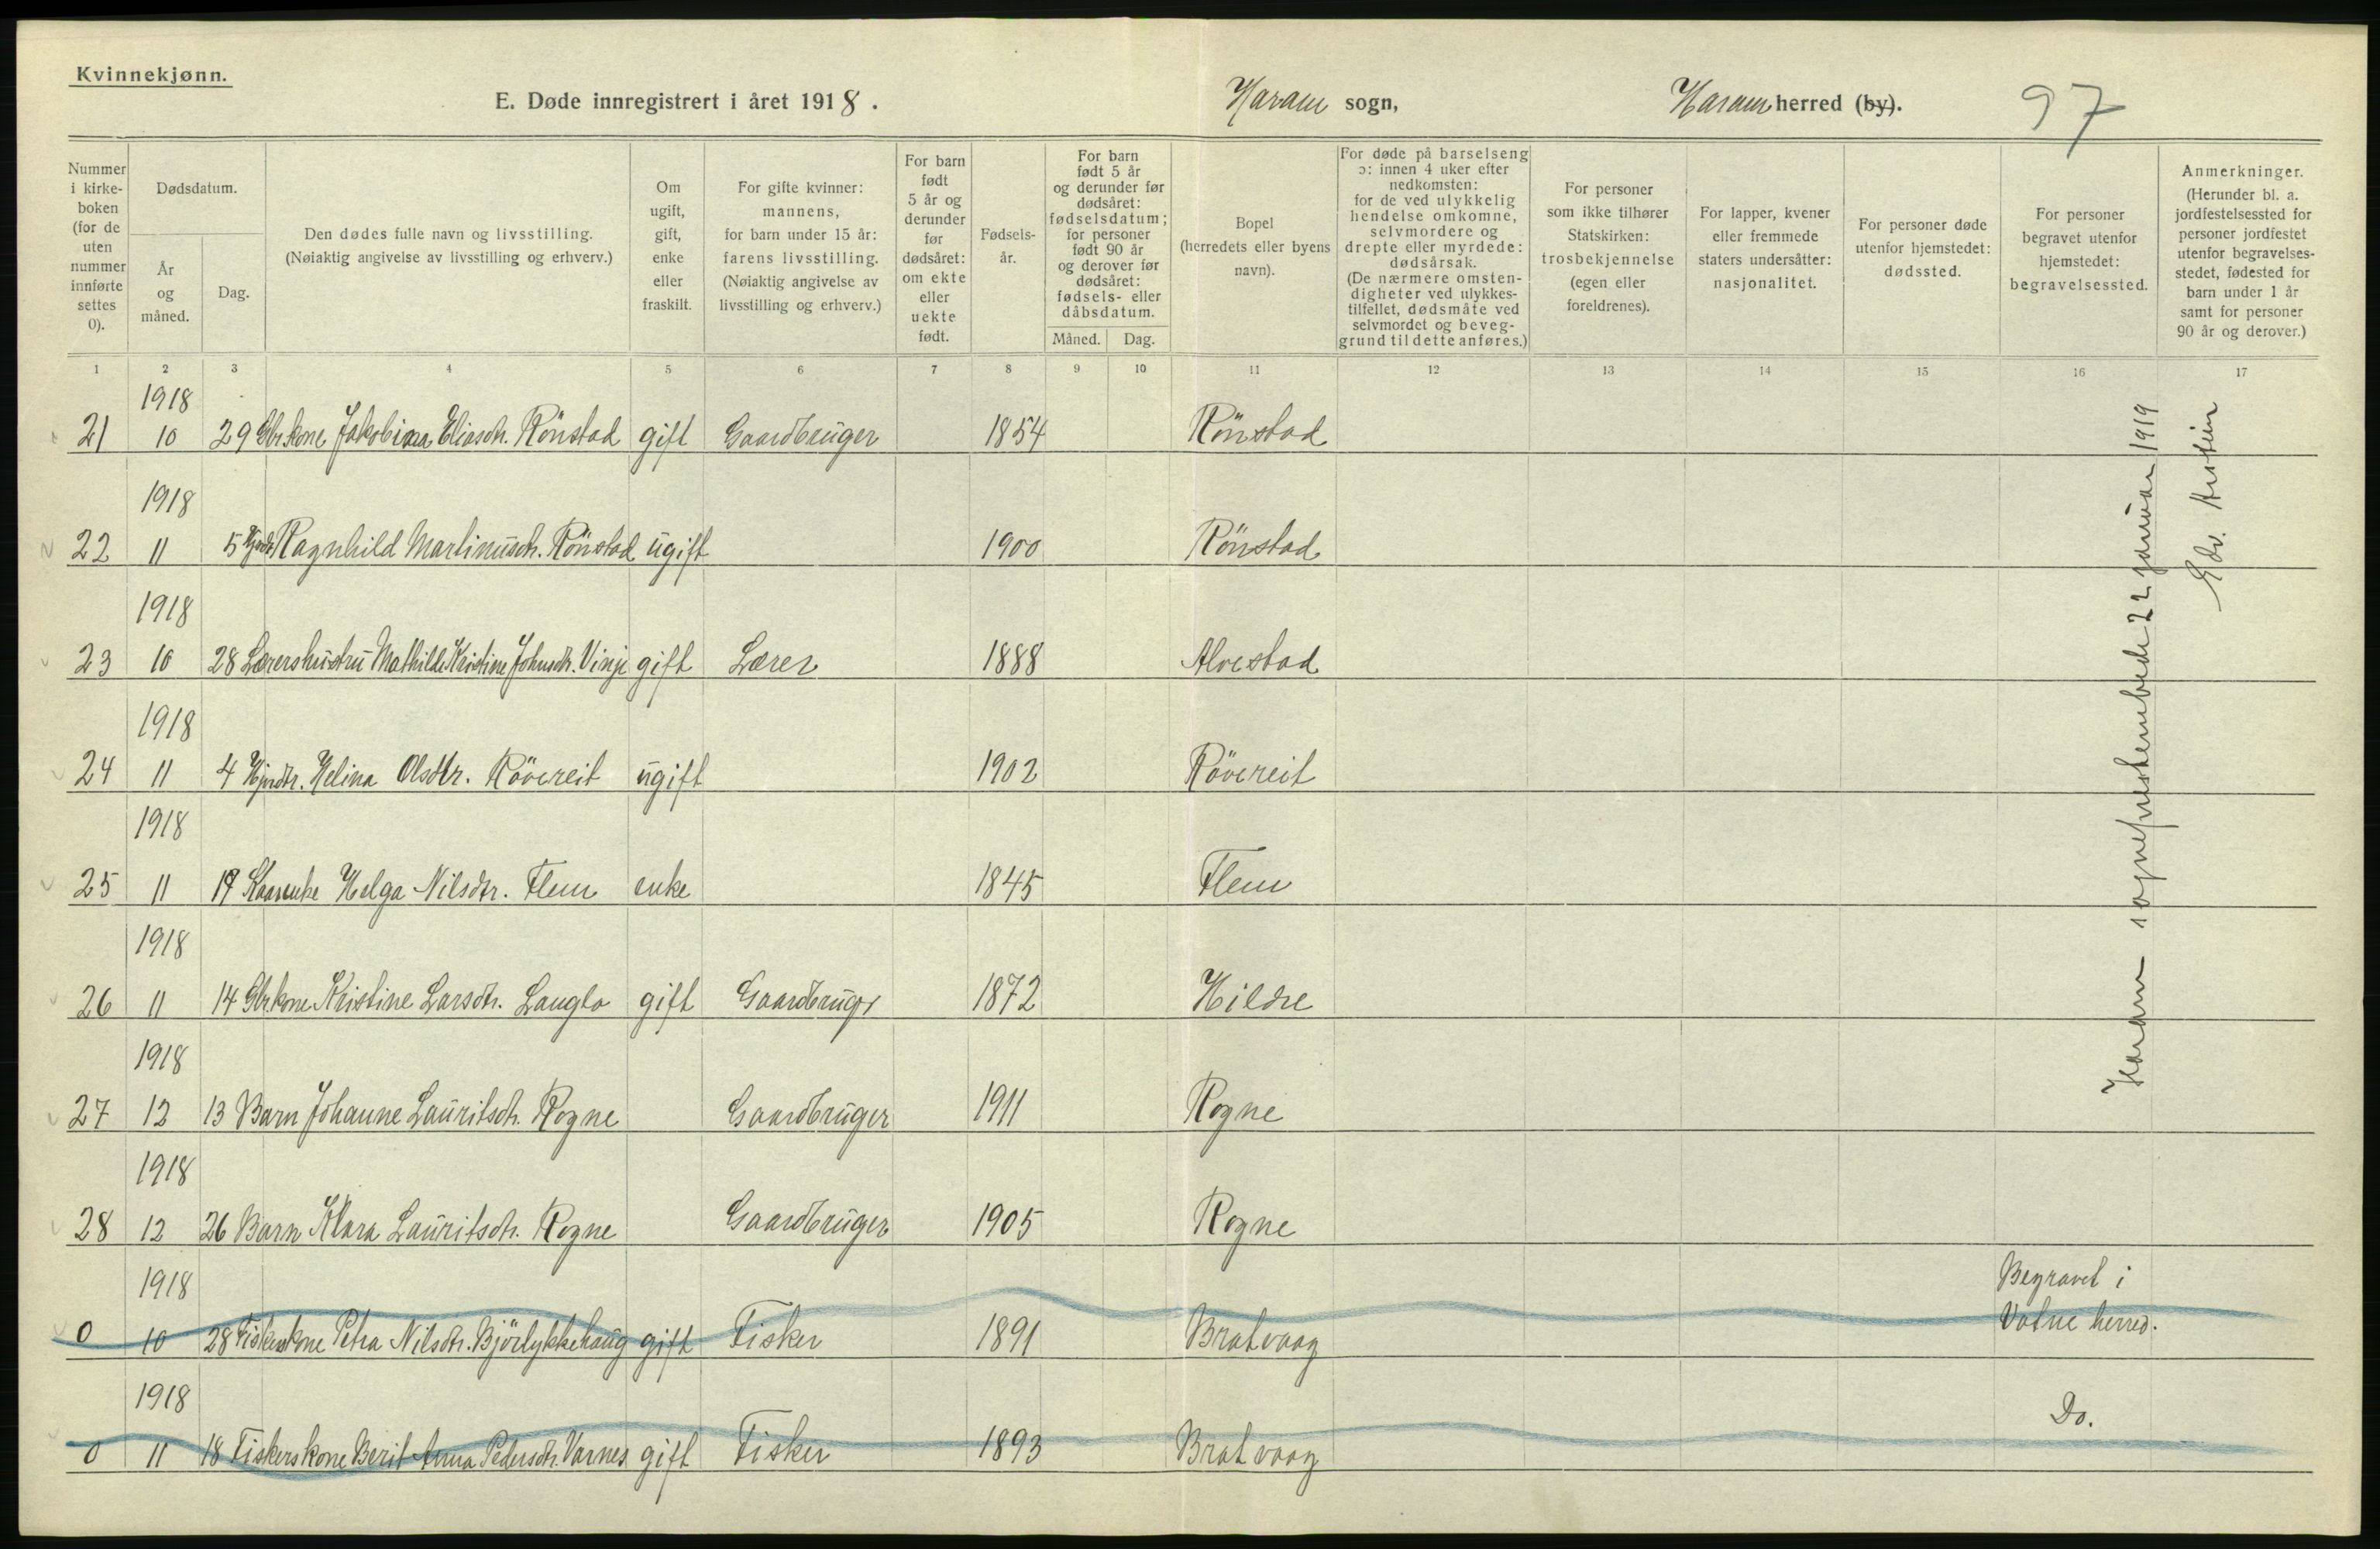 Kvinnekjønn.
E. Døde innregistrert i året 1918. Haram sogn, Haram herred (by). 97
Nummer i kirkeboken (for de uten nummer innførte settes 0).
Dødsdatum.
År og måned.
Dag.
Den dødes fulle navn og livsstilling.
(Nøiaktig angivelse av livsstilling og erhverv.)
Om ugift, gift, enke eller fraskilt.
For gifte kvinner: mannens, for barn under 15 år: farens livsstilling.
(Nøiaktig angivelse av livsstilling og erhverv.)
For barn født 5 år og derunder før dødsåret: om ekte eller uekte født.
Fødsels-år.
For barn født 5 år og derunder før dødsåret: fødselsdatum; for personer født 90 år og derover før dødsåret: fødsels- eller dåbsdatum.
Måned. Dag.
Bopel (herredets eller byens navn).
For døde på barselseng ɔ: innen 4 uker efter nedkomsten: for de ved ulykkelig hendelse omkomne, selvmordere og drepte eller myrdede: dødsårsak.
(De nærmere omstendigheter ved ulykkestilfellet, dødsmåte ved selvmordet og beveggrund til dette anføres.)
For personer som ikke tilhører Statskirken: trosbekjennelse (egen eller foreldrenes).
For lapper, kvener eller fremmede staters undersåtter: nasjonalitet.
For personer døde utenfor hjemstedet: dødssted.
For personer begravet utenfor hjemstedet: begravelsessted.
Anmerkninger.
(Herunder bl. a. jordfestelsessted for personer jordfestet utenfor begravelsesstedet, fødested for barn under 1 år samt for personer 90 år og derover.)
1 2 3 4 5 6 7 8 9 10 11 12 13 14 15 16 17
1918
21 10 29 Gbr.kone Jakobina Eliasdtr. Rönstad gift Gaardbruger 1854 Rönstad
1918
22 11 5 Ragnhild Martinusdtr. Rönstad ugift 1900 Rönstad
1918
23 10 28 Lærershustru Mathilde Kristine Johnsdtr. Vinje gift Lærer 1888 Alvestad
1918
24 11 4 Helina Olsdtr. Rövereit ugift 1902 Rövereit
1918
25 11 19 Kaarenke Helga Nilsdtr. Flem enke 1845 Flem
1918
26 11 14 Gbr.kone Kristine Larsdtr. Langlo gift Gaardbruger 1872 Hildre
1918
27 12 13 Barn Johanne Lauritsdtr. Rogne Gaardbruger 1911 Rogne
1918
28 12 26 Barn Klara Lauritsdtr. Rogne Gaardbruger 1905 Rogne
1918
0 10 28 Fiskerskone Petra Nilsdtr. Björlykkehaug gift Fisker 1891 Bratvaag Begravet i Vatne herred.
1918
0 11 18 Fiskerskone Berit Anna Pedersdtr. Varnes gift Fisker 1893 Bratvaag Do.
Haram sogneprestembede 22 januar 1919
Edv.